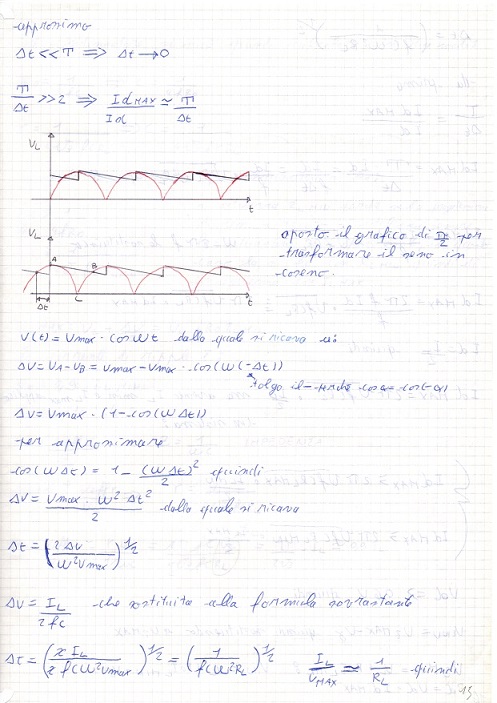 approssimo
Δt << T ⇒ Δt → 0
T/Δt >> 2 ⇒ Id MAX / Id ≃ T/Δt
VL
t
sposto il grafico di π/2 per
trasformare il seno in
coseno.
VL
A
B
C
Δt
t
V(t) = Vmax · cos Wt dalla quale si ricava
ΔV = VA - VB = Vmax - Vmax · cos(W(-Δt))
tolgo il - perché cos α = cos(-α)
ΔV = Vmax · (1 - cos(WΔt))
per approssimare
cos(WΔt) = 1 - (WΔt)²/2 quindi
ΔV = Vmax · W² · Δt² / 2 dalla quale si ricava
Δt = (2 ΔV / W² Vmax)^1/2
ΔV = IL / 2fC che sostituita alla formula sovrastante
Δt = (2 IL / 2 f C W² Vmax)^1/2 = (1 / f C W² RL)^1/2 IL / VMAX ≃ 1 / RL quindi
13